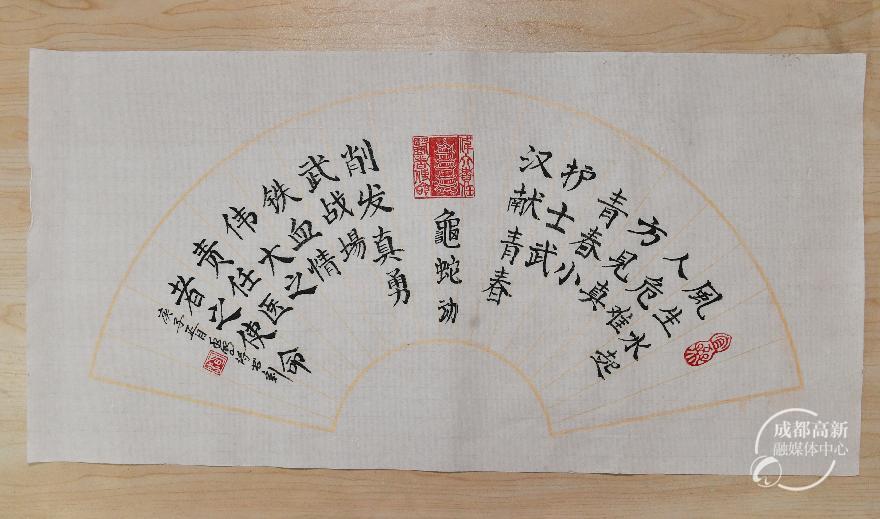 風生水起
人危难
方见真
青春小
护士武
汉献青春
龜蛇动
削发真勇
武战場
铁血情
伟大之
责任医
者之使命
庚子正月
成都高新
融媒体中心